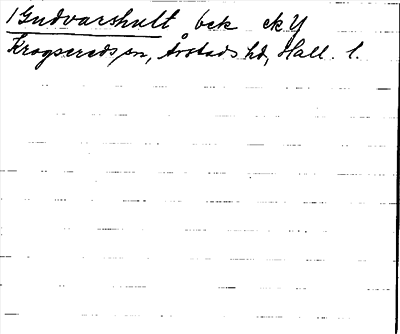 1 Gudvarshult bek ek Y
Krogsereds sn, Årstads hd, Hall. l.